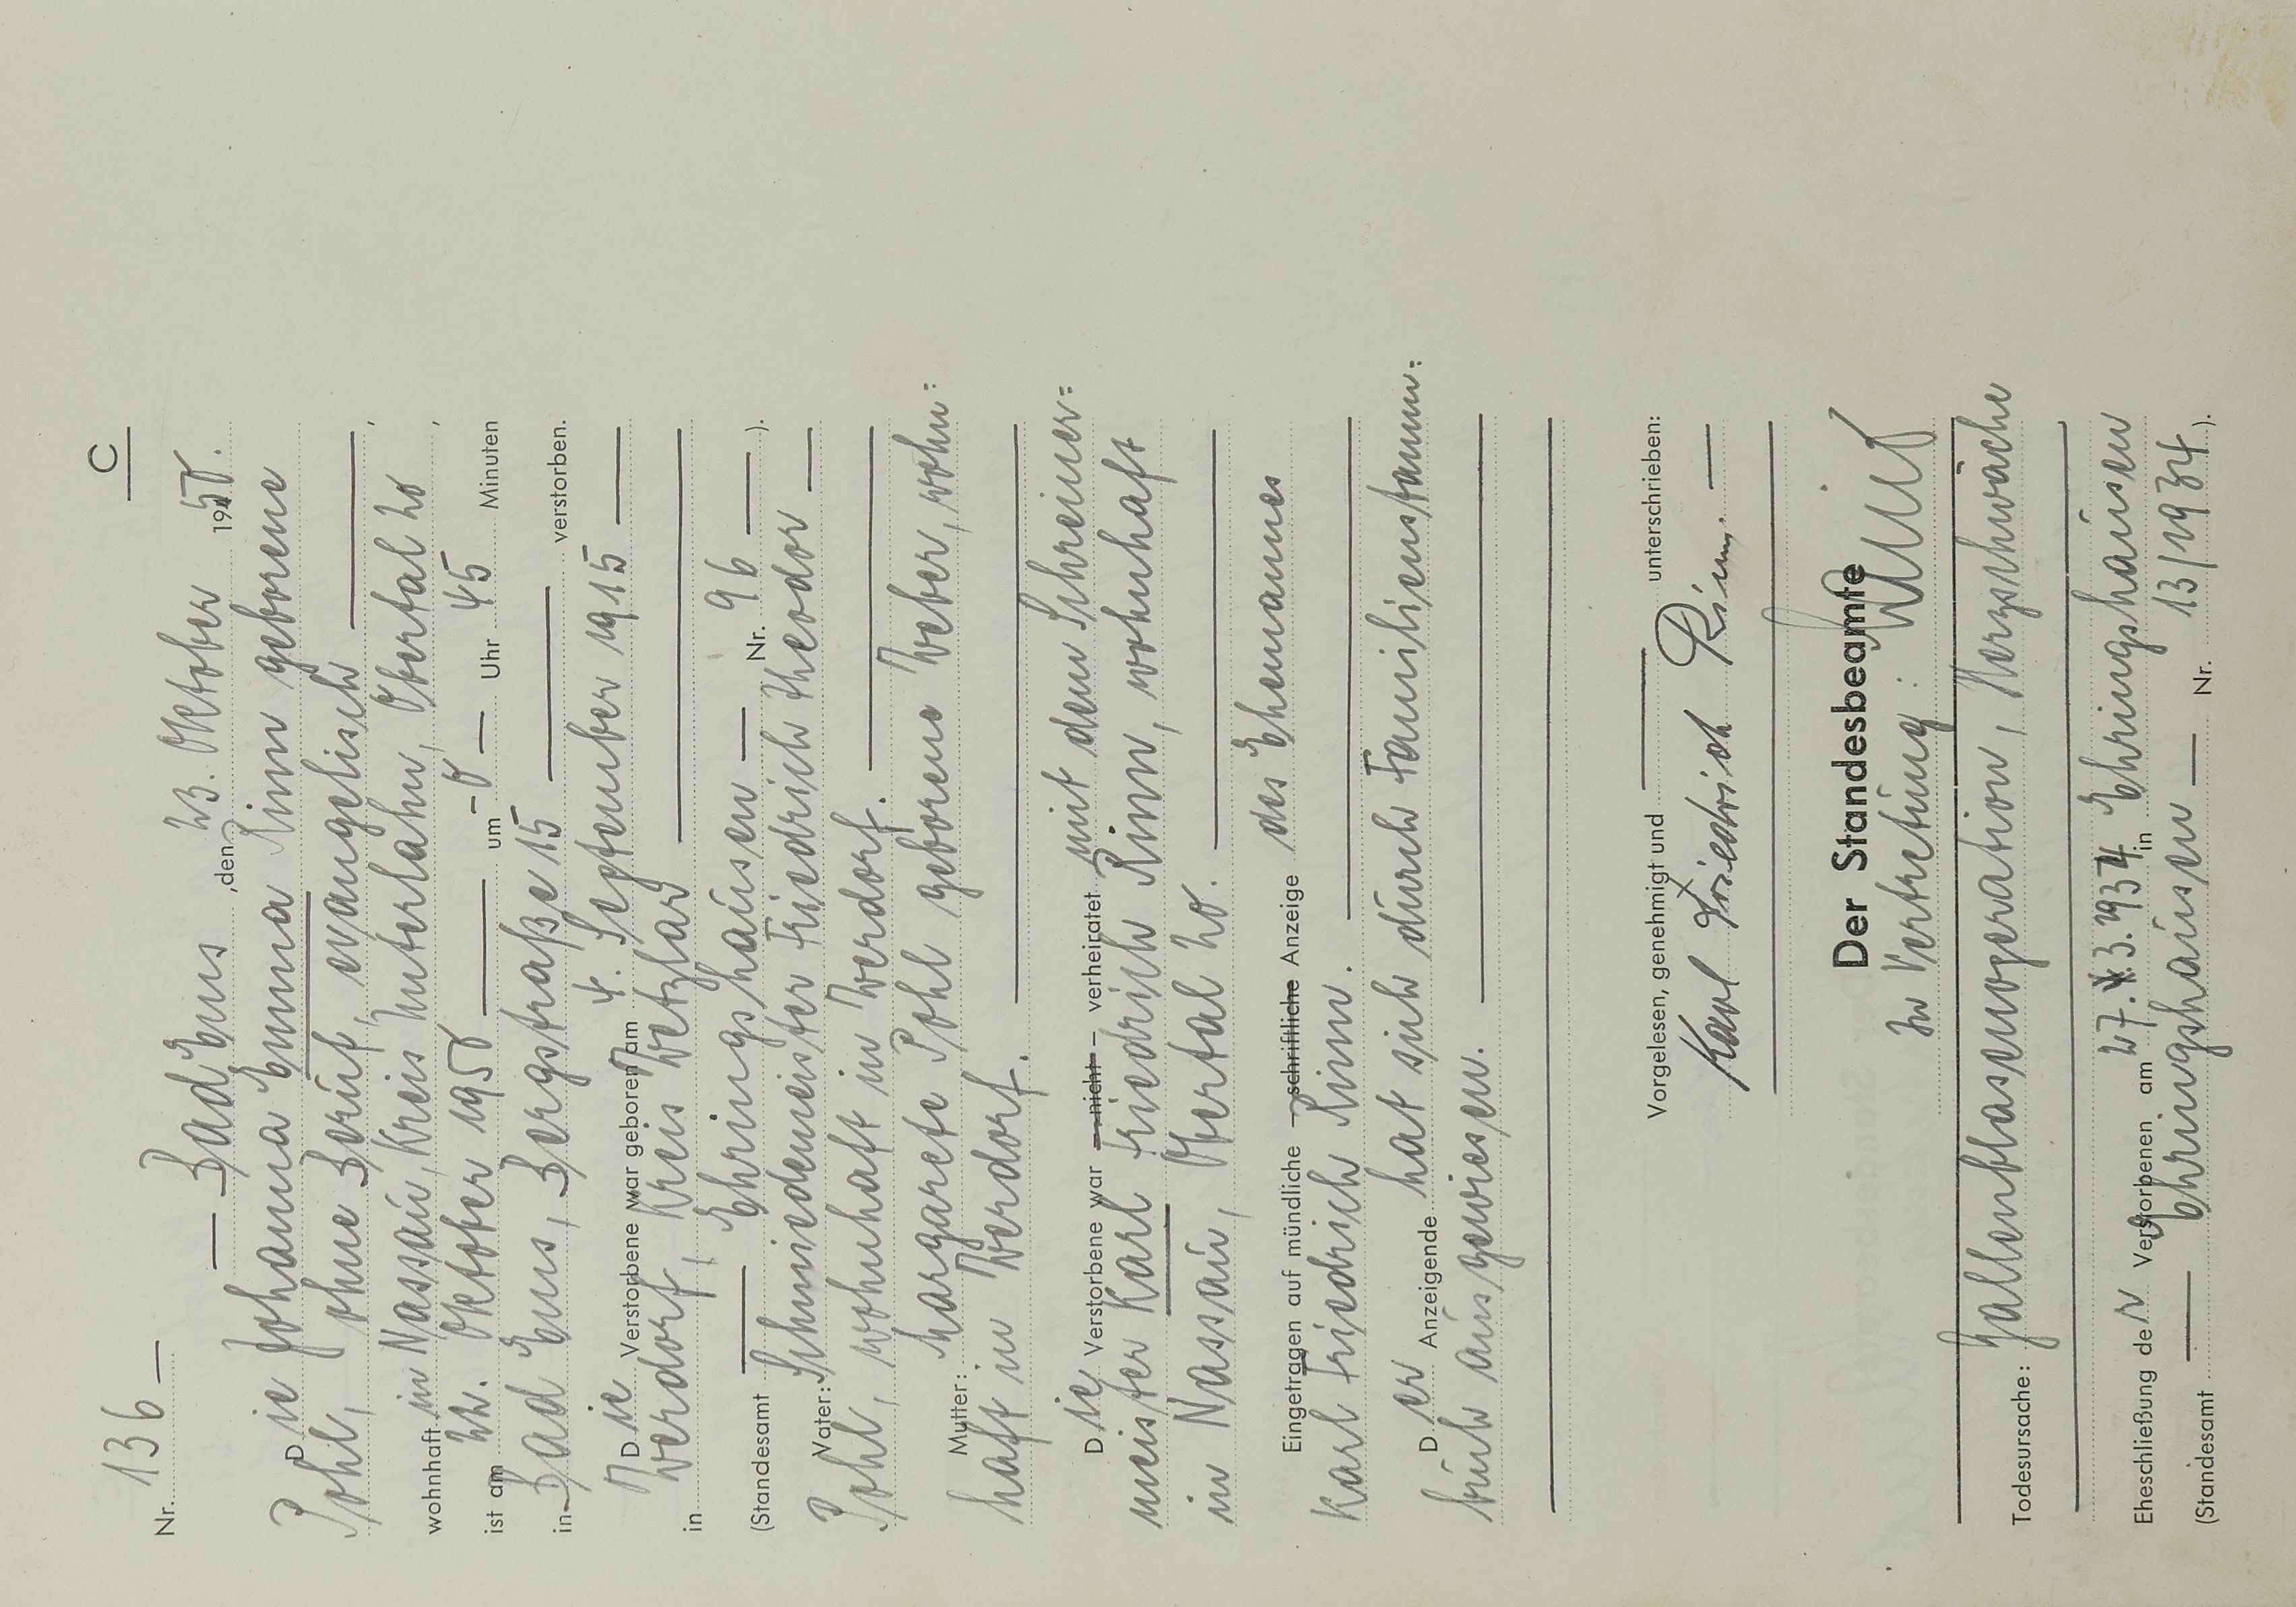 C
Nr. 136
Bad Ems, den 23. Oktober 1950.
Die Johanna Emma Rinn geborene
Pohl, ohne Beruf, evangelisch
wohnhaft in Nassau, Kreis Unterlahn, Obertal 20,
ist am 22. Oktober 1950 um 0 Uhr 45 Minuten
in Bad Ems, Bergstraße 15 verstorben.
Die Verstorbene war geboren am 4. September 1915
in Werdorf, Kreis Wetzlar
(Standesamt Ehringshausen Nr. 96).
Vater: Schmiedemeister Friedrich Theodor
Pohl, wohnhaft in Werdorf.
Mutter: Margarete Pohl geborene Weber, wohn=
haft in Werdorf.
Die Verstorbene war – nicht – verheiratet mit dem Schreiner=
meister Karl Friedrich Rinn, wohnhaft
in Nassau, Obertal 20.
Eingetragen auf mündliche – schriftliche Anzeige des Ehemannes
Karl Friedrich Rinn.
Der Anzeigende hat sich durch Familienstamm=
buch ausgewiesen.
Vorgelesen, genehmigt und unterschrieben:
Karl Friedrich Rinn.
Der Standesbeamte
In Vertretung:
Todesursache: Gallenblasenoperation, Herzschwäche
Eheschließung der Verstorbenen am 27.3.1934 in Ehringshausen
(Standesamt Ehringshausen Nr. 13/1934).